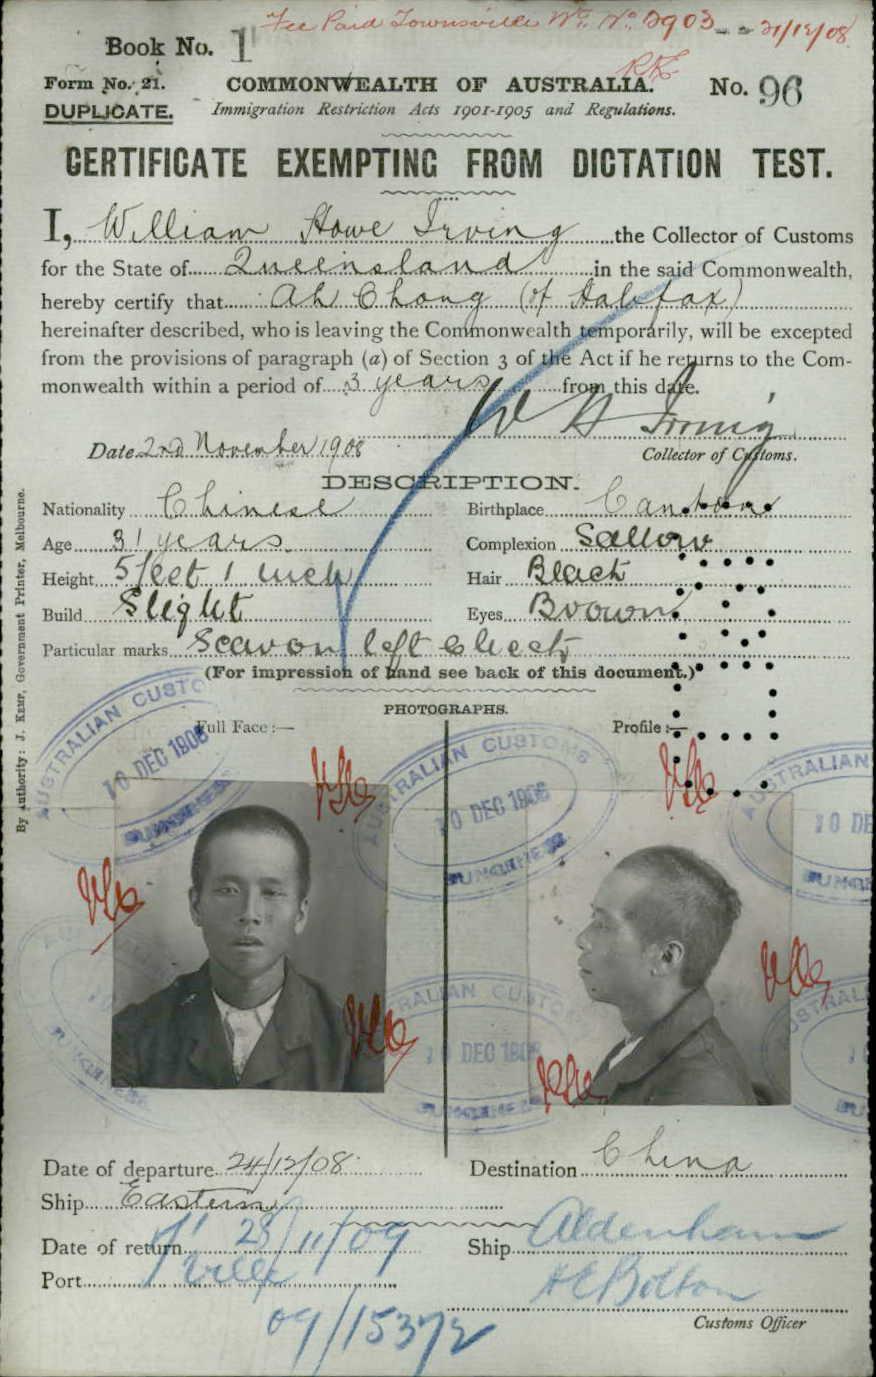 Fee Paid Townsville No. 2903 21/12/08
Book No. 1
Form No. 21.
COMMONWEALTH OF AUSTRALIA.
No. 96
DUPLICATE.
Immigration Restriction Acts 1901-1905 and Regulations.
CERTIFICATE EXEMPTING FROM DICTATION TEST.
I, William Howe Irving the Collector of Customs
for the State of Queensland in the said Commonwealth,
hereby certify that Ah Chong (of Halifax)
hereinafter described, who is leaving the Commonwealth temporarily, will be excepted
from the provisions of paragraph (a) of Section 3 of the Act if he returns to the Com-
monwealth within a period of 3 years from this date.
W H Irving
Date 2nd November 1908
Collector of Customs.
DESCRIPTION.
Nationality Chinese
Birthplace Canton
Age 31 years
Complexion Sallow
Height 5 feet 1 inch
Hair Black
Build Slight
Eyes Brown
Particular marks Scar on left cheek
(For impression of hand see back of this document.)
PHOTOGRAPHS.
Full Face :—
Profile :—
By Authority: J. Kemp, Government Printer, Melbourne.
AUSTRALIAN CUSTOMS
10 DEC 1908
DUNGENESS
AUSTRALIAN CUSTOMS
10 DEC 1908
DUNGENESS
AUSTRALIAN
10 DE
DUNGE
AUSTRALIAN CUSTOMS
10 DEC 1908
DUNGENESS
Date of departure 24/12/08
Destination China
Ship Eastern
Date of return 28/11/09
Ship Aldenham
Port T'ville
H C Bolton
Customs Officer
09/15372